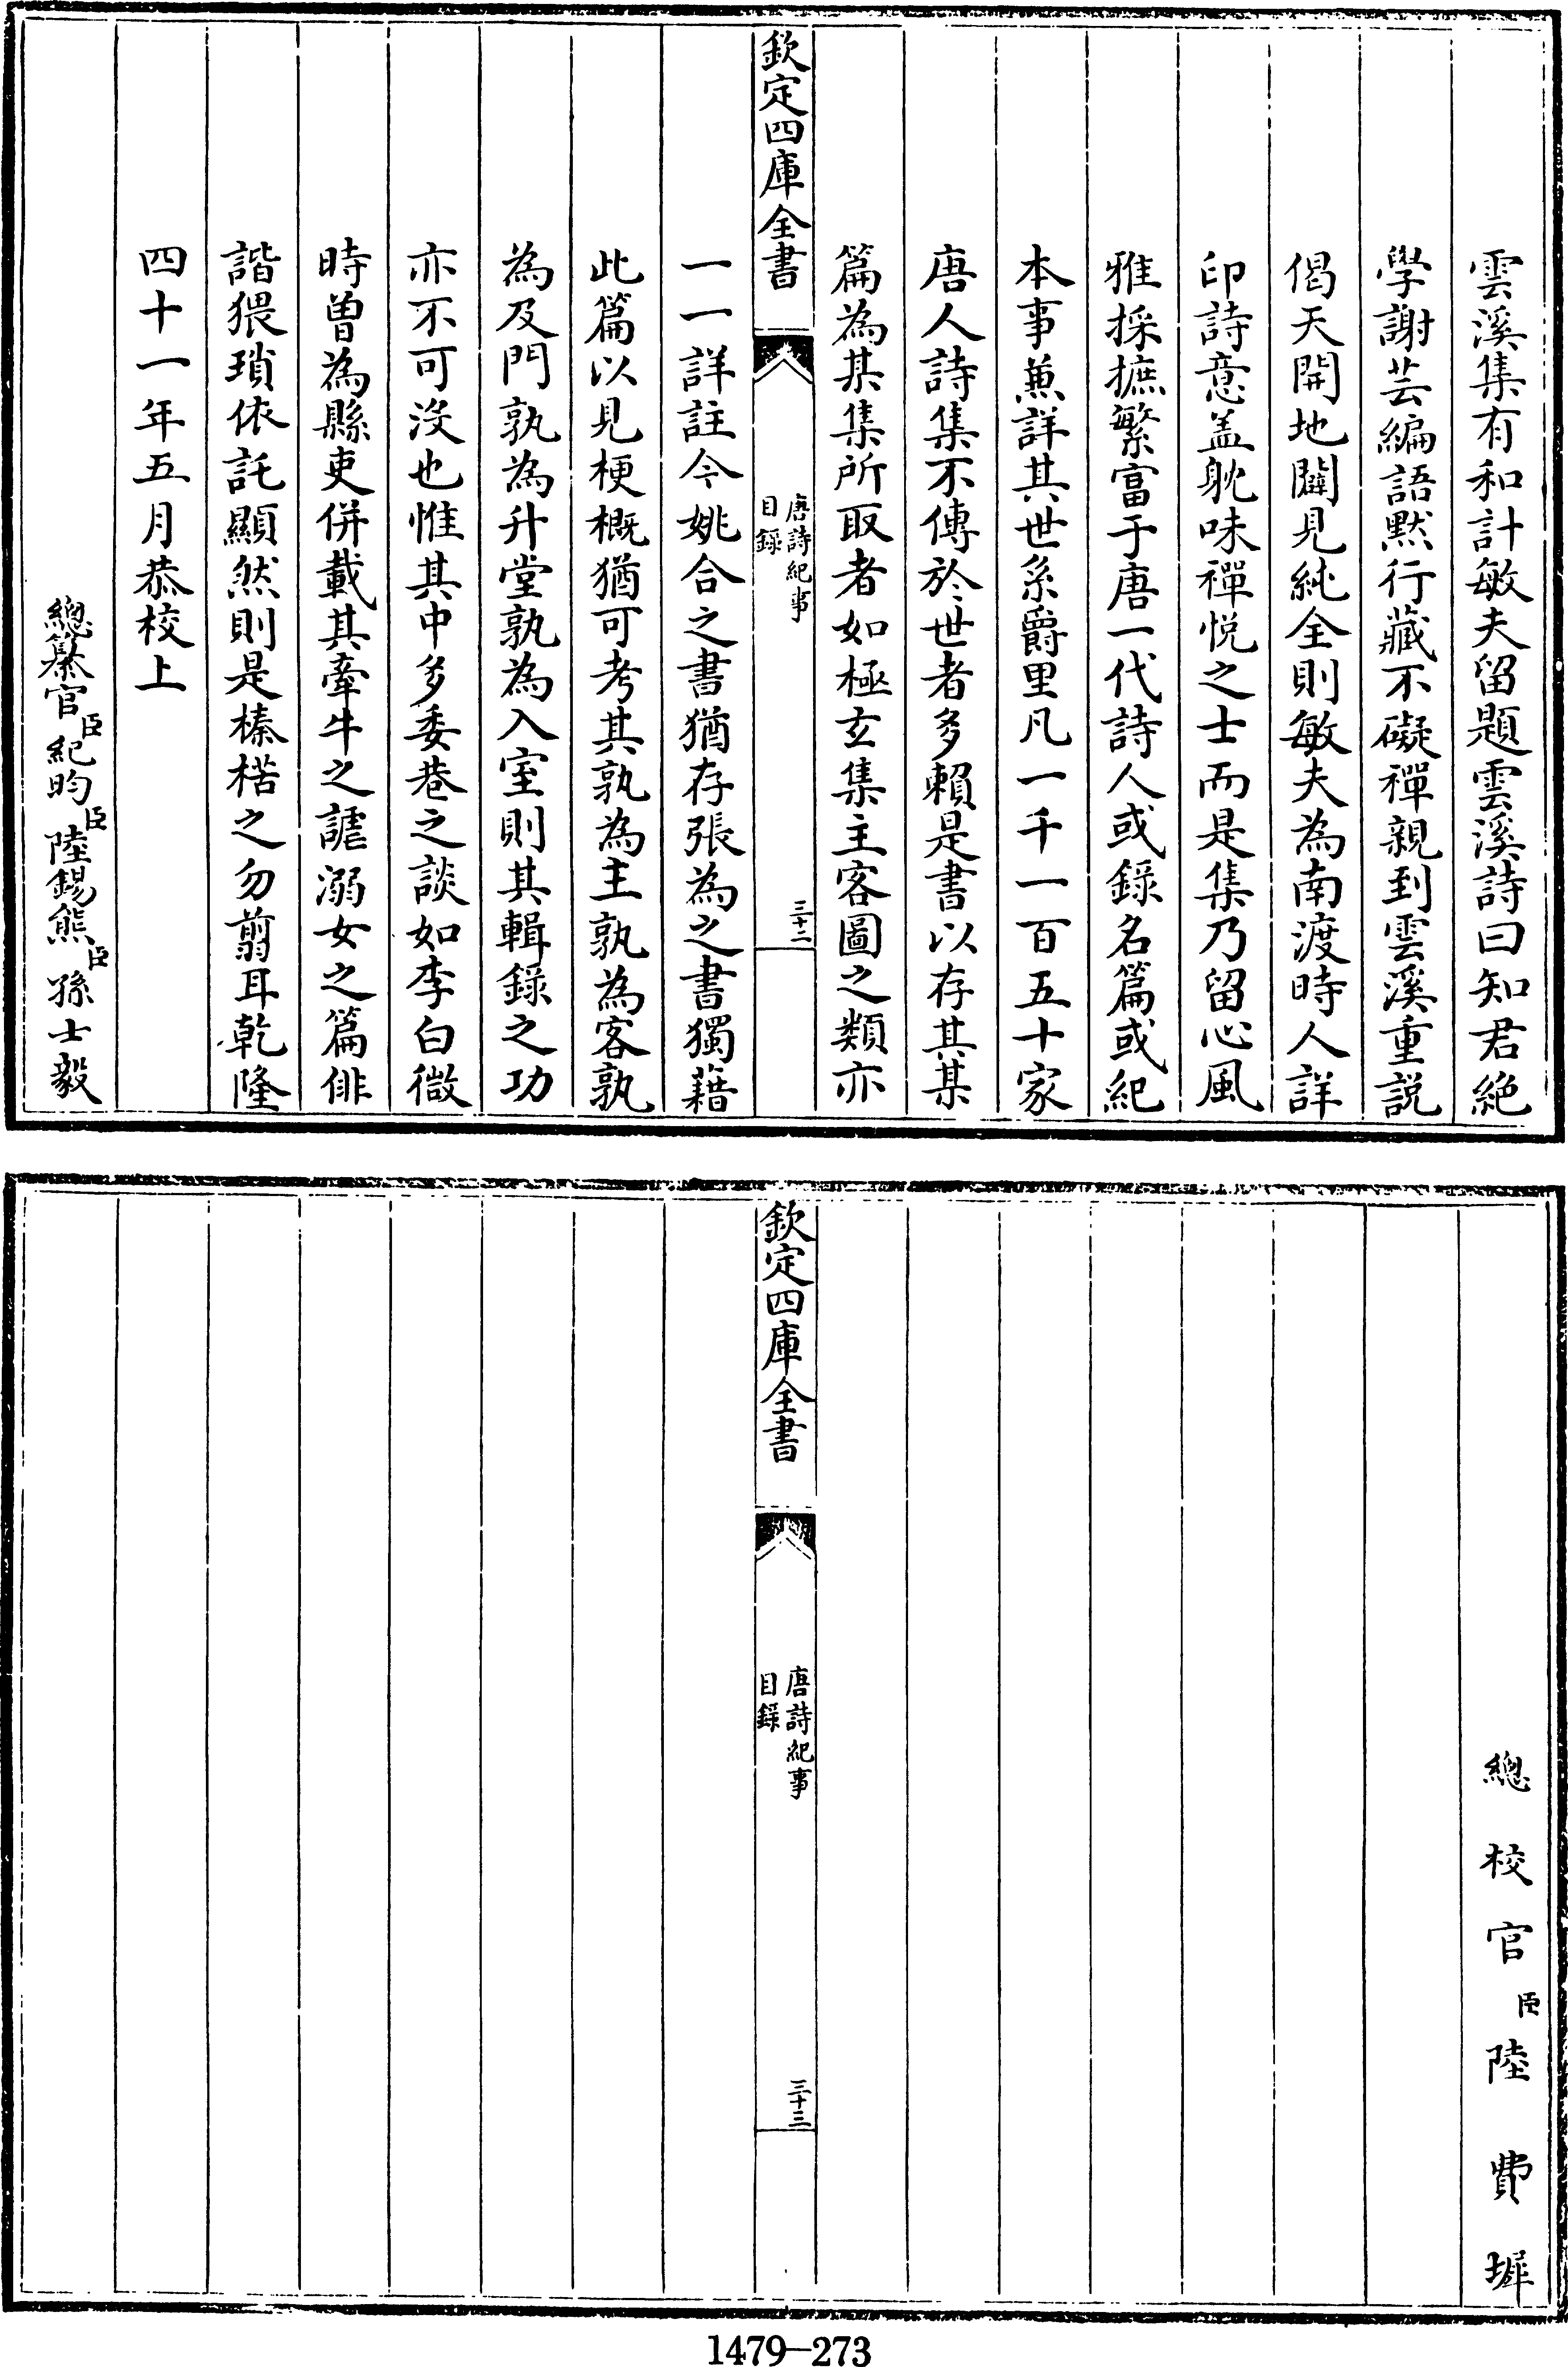 雲溪集有和計敏夫留題雲溪詩曰知君絶
學謝芸編語黙行藏不礙禪親到雲溪重説
偈天開地闢見純全則敏夫為南渡時人詳
印詩意盖躭味禪悦之士而是集乃留心風
雅採摭繁富于唐一代詩人或録名篇或紀
本事兼詳其世系爵里凡一千一百五十家
唐人詩集不傳於世者多賴是書以存其某
篇為某集所取者如極玄集主客圖之類亦
欽定四庫全書
唐詩紀事
目録
三十二
一一詳註今姚合之書猶存張為之書獨藉
此篇以見梗概猶可考其孰為主孰為客孰
為及門孰為升堂孰為入室則其輯録之功
亦不可没也惟其中多委巷之談如李白微
時曾為縣吏併載其牽牛之謔溺女之篇俳
諧猥瑣依託顯然則是榛楛之勿翦耳乾隆
四十一年五月恭校上
總纂官臣紀昀臣陸錫熊臣孫士毅
總校官臣陸費墀
欽定四庫全書
唐詩紀事
目録
三十三
1479-273